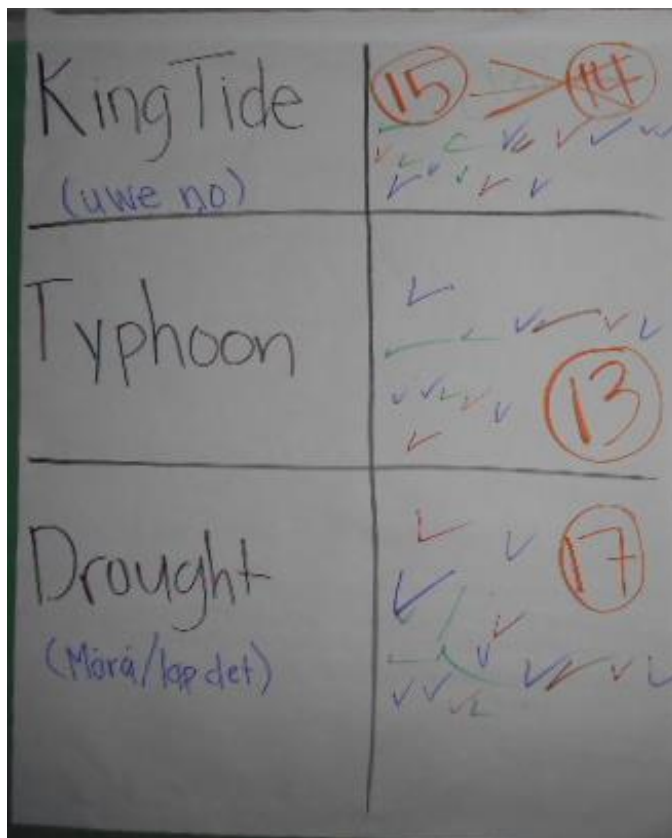 King Tide
(uwe no)
15 14
Typhoon
13
Drought
(Mōrā/lap det)
17